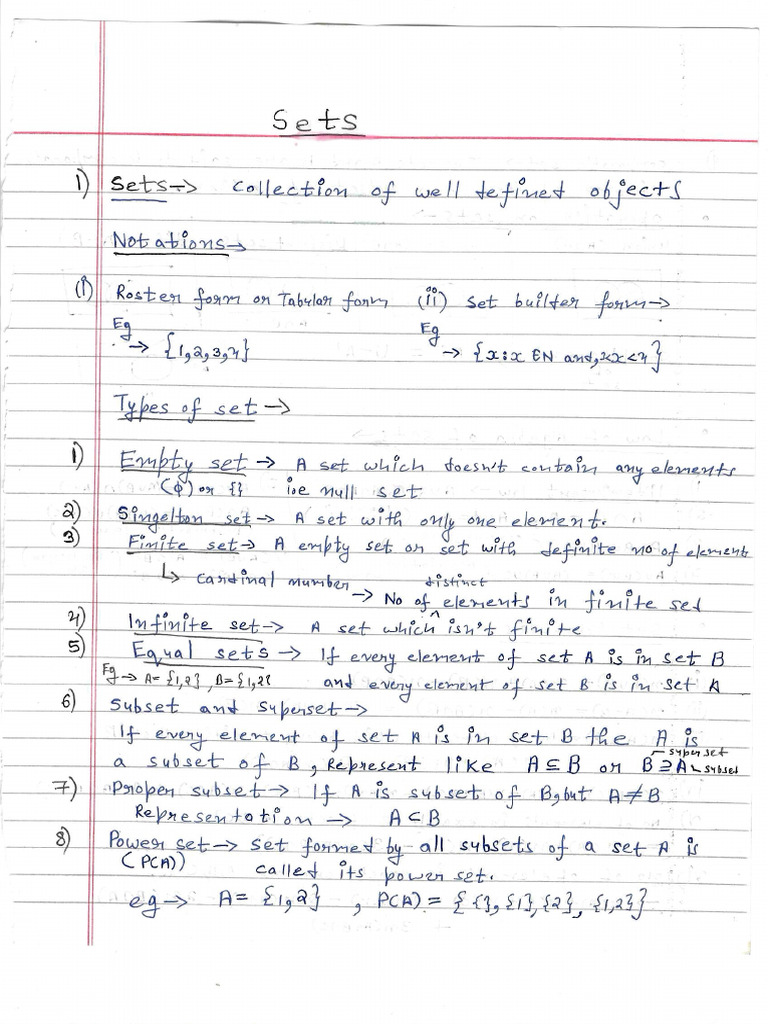 Sets
1) Sets → Collection of well defined objects
Notations →
(i) Roster form or Tabular form (ii) Set builter form →
Eg → {1,2,3,4} Eg → {x:x EN and, <x<4}
Types of set →
1) Empty set → A set which doesn't contain any elements
(ϕ) or {} i.e null set
2) Singelton set → A set with only one element.
3) Finite set → A empty set or set with definite no of element
↳ cardinal number → No of ^ distinct elements in finite set
4) Infinite set → A set which isn't finite
5) Equal sets → If every element of set A is in set B
Eg → A= {1,2} , B={1,2} and every element of set B is in set A
6) Subset and Superset →
If every element of set A is in set B the A is
a subset of B, Represent like A⊆B or B⊇A superset subset
7) Proper subset → If A is subset of B, but A≠B
Representation → A⊂B
8) Power set → Set formed by all subsets of a set A is
(P(A)) called its power set.
eg → A= {1,2} , P(A) = { {}, {1}, {2}, {1,2} }